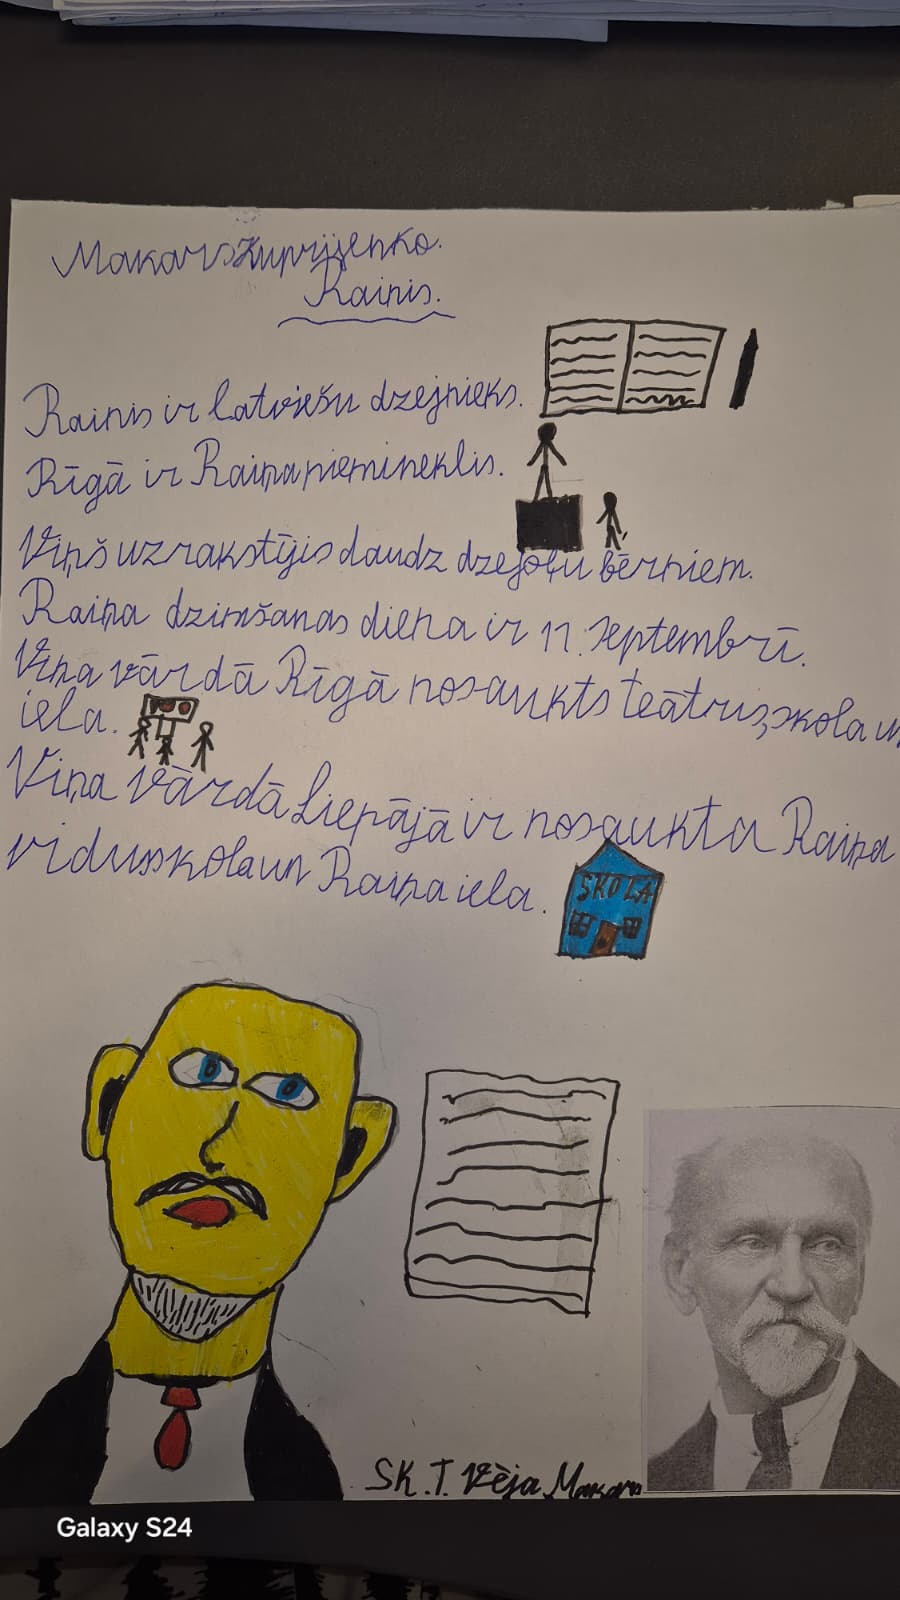 Makars Kuprijenko.
Rainis.
Rainis ir latviešu dzejnieks.
Rīgā ir Raiņa piemineklis.
Viņš uzrakstījis daudz dzejoļu bērniem.
Raiņa dzimšanas diena ir 11. septembrī.
Viņa vārdā Rīgā nosaukts teātris, skola un
iela.
Viņa vārdā Liepājā ir nosaukta Raiņa
vidusskola un Raiņa iela.
SKOLA
SK. T. Vēja Makars
Galaxy S24